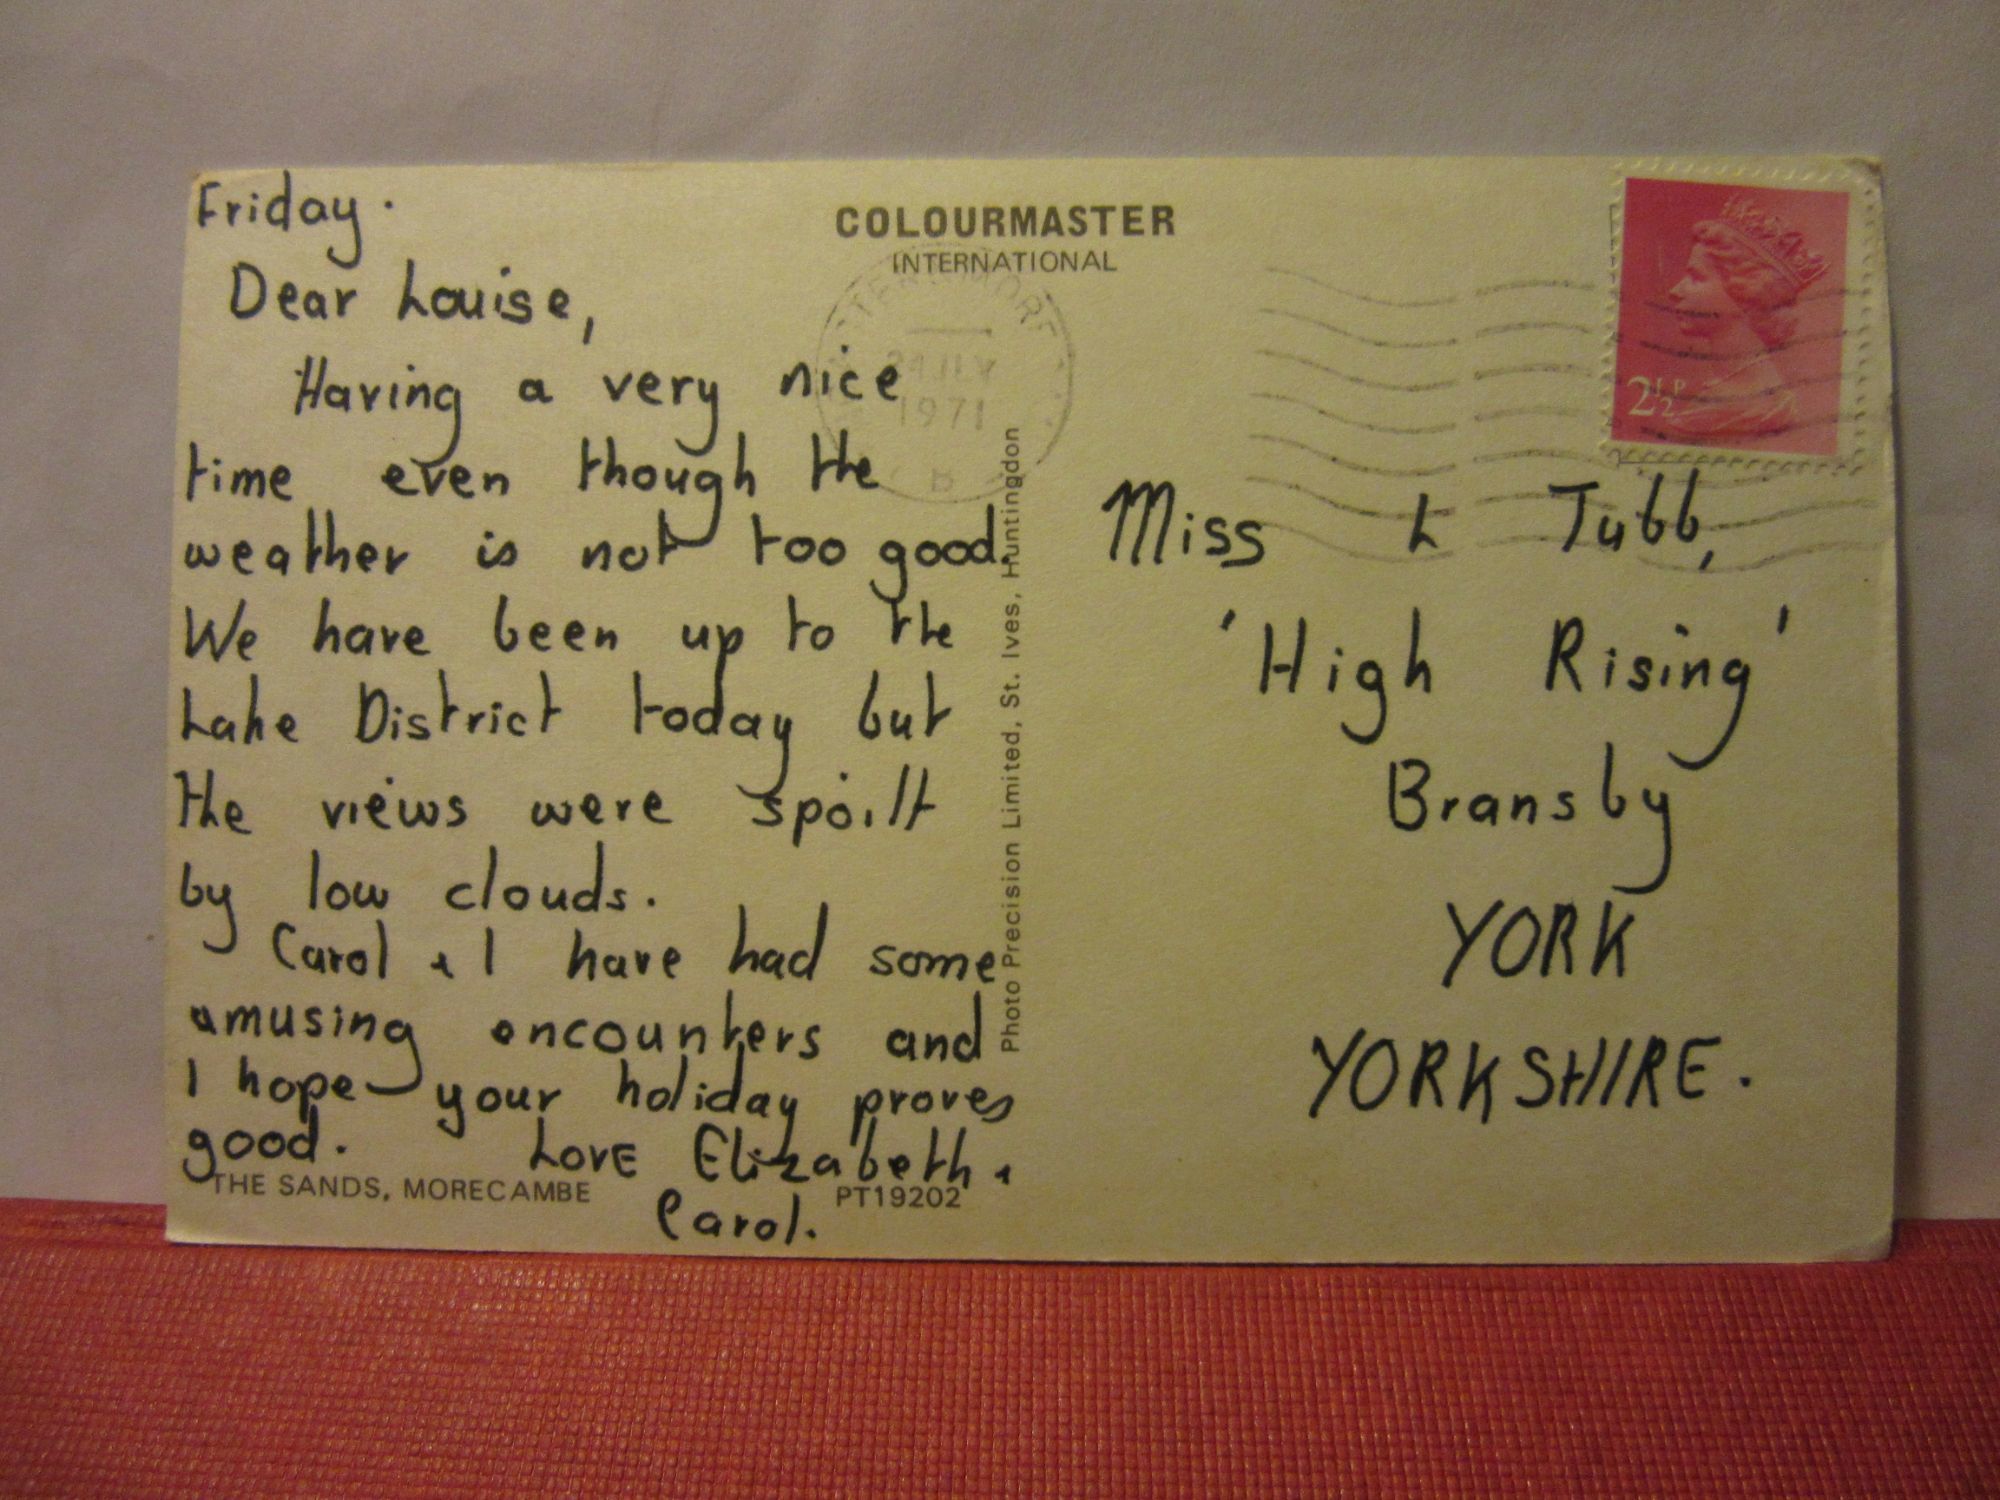 Friday.
Dear Louise,
Having a very nice
time even though the
weather is not too good.
We have been up to the
Lake District today but
the views were spoilt
by low clouds.
Carol & I have had some
amusing encounters and
I hope your holiday proves
good. Love Elizabeth &
Carol.
THE SANDS, MORECAMBE PT19202
COLOURMASTER
INTERNATIONAL
1971
Photo Precision Limited, St. Ives, Huntingdon
2½P
Miss L Tubb,
'High Rising'
Bransby
YORK
YORKSHIRE.